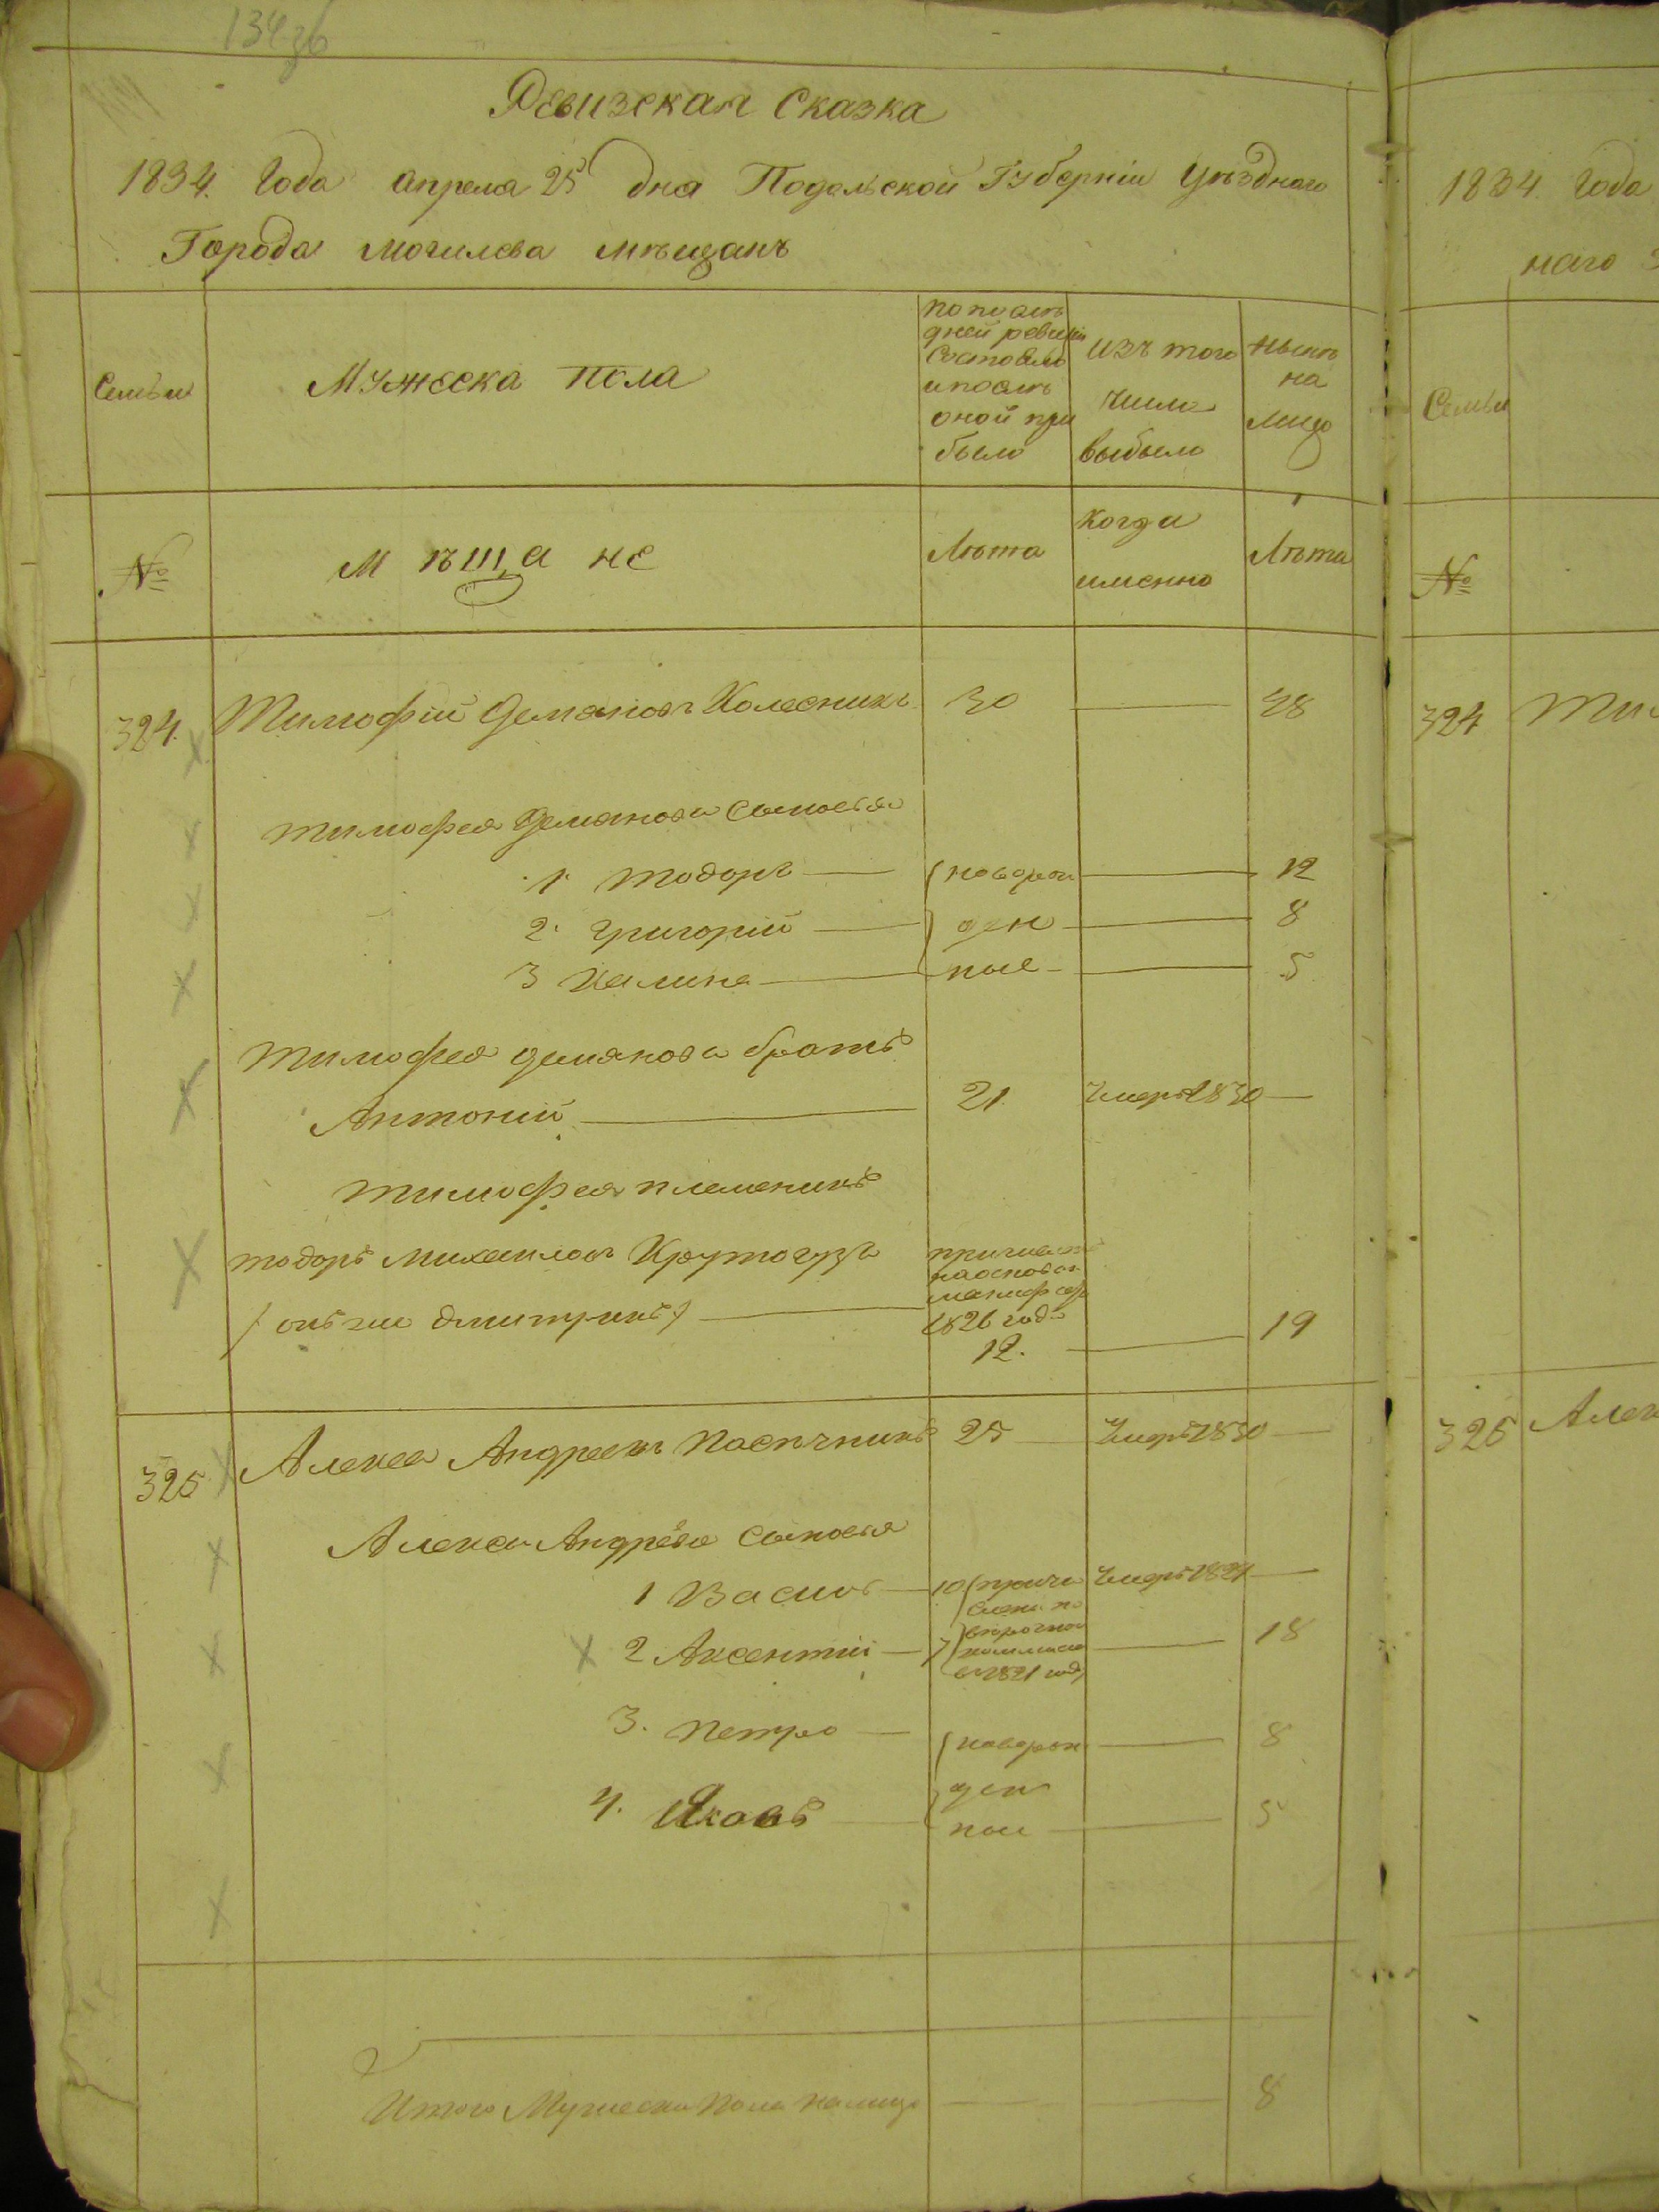 134зв
Ревизская Сказка
1834. Года апреля 25 дня Подольской Губерніи Уѣзднаго
Города Могилева мѣщанъ
Семьи
Мужеска пола
по послѣ
дней ревизіи
Состояло
и послѣ
оной при
было
Изъ того
числа
выбыло
Нынѣ
на
лицо
№
Мѣщане
Лѣта
Когда
именно
Лѣта
324. Тимофій Демяновъ Колесникъ 30 48
Тимофея Демянова Сыновья
1. Тодоръ новорож 12
2. Григорій ден 8
3 Калина ные 5
Тимофея Демянова братъ
Антоній 21. Умеръ 1830
Тимофея племеникъ
Тодоръ Михаиловъ Крутогузъ
/ онъ же Дмитрикъ /
1826 год
12. 19
325 Алекса Андреевъ Пасѣчникъ 25 Умеръ 1830
Алексы Андрѣева Сыновья
1 Василь 10 причи Умеръ 1821
слены по
2 Аксентій 7 18
в 1821 году
3. Петро новорож 8
ден
4. Яковъ ные 5
Итого Мужеска Пола налицо 8
1834 Года
наго
Семьи
№
324 Тим
325 Алек